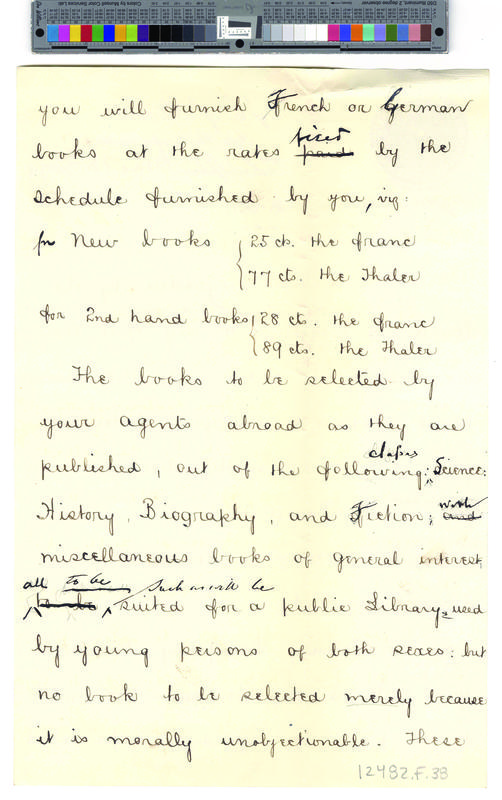 you will furnish French or German
fixed
books at the rates paid by the
schedule furnished by you, viz:
for New books { 25 cts. the franc
77 cts. the Thaler
for 2nd hand books { 28 cts. the franc
89 cts. the Thaler
The books to be selected by
your agents abroad as they are
classes
published, out of the following: Science:
History, Biography, and Fiction; and
with
miscellaneous books of general interest,
all to be such as will be
to be suited for a public Library, used
by young persons of both sexes: but
no book to be selected merely because
it is morally unobjectionable. These
12482.F.38